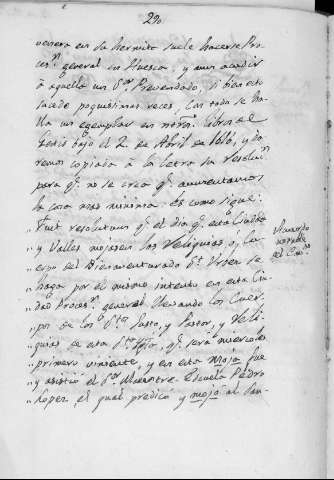 290.
venera en su hermita suele hacerse Pro-
ces.n general en Huesca, y aun acudir
à aquella un S.or Prevendado, si bien esto
sucede poquisimas veces. Con todo se ha-
lla un egemplar en nrõs. libros al
bajo el 2. de Abril de 1616, y da-
remos copiada à la letra su resoluc.n
para q.e no se crea q.e aumentamos
la cosa mas minima. Es como sigue:
"Fuit resolutum q.e el dia q.e esta Ciudad
"y Valles mojasen las Reliquias, o, Cu-
erpo del Bienaventurado S.n Urbez se
"haga por el mismo intento en esta Ciu-
"dad Proces.n general llevando los Cuer-
"pos de los S.tos Justo, y Pastor, y Reli-
"quias de esta S.ta Igl.a, q.e será miercoles
"primero viniente, y en esta moja fue
"y asistió el S.or Maestre-Escuela Pedro
"Lopez, el qual predicó y mojó al San-
Vacuerdo
notable
del Cav.do